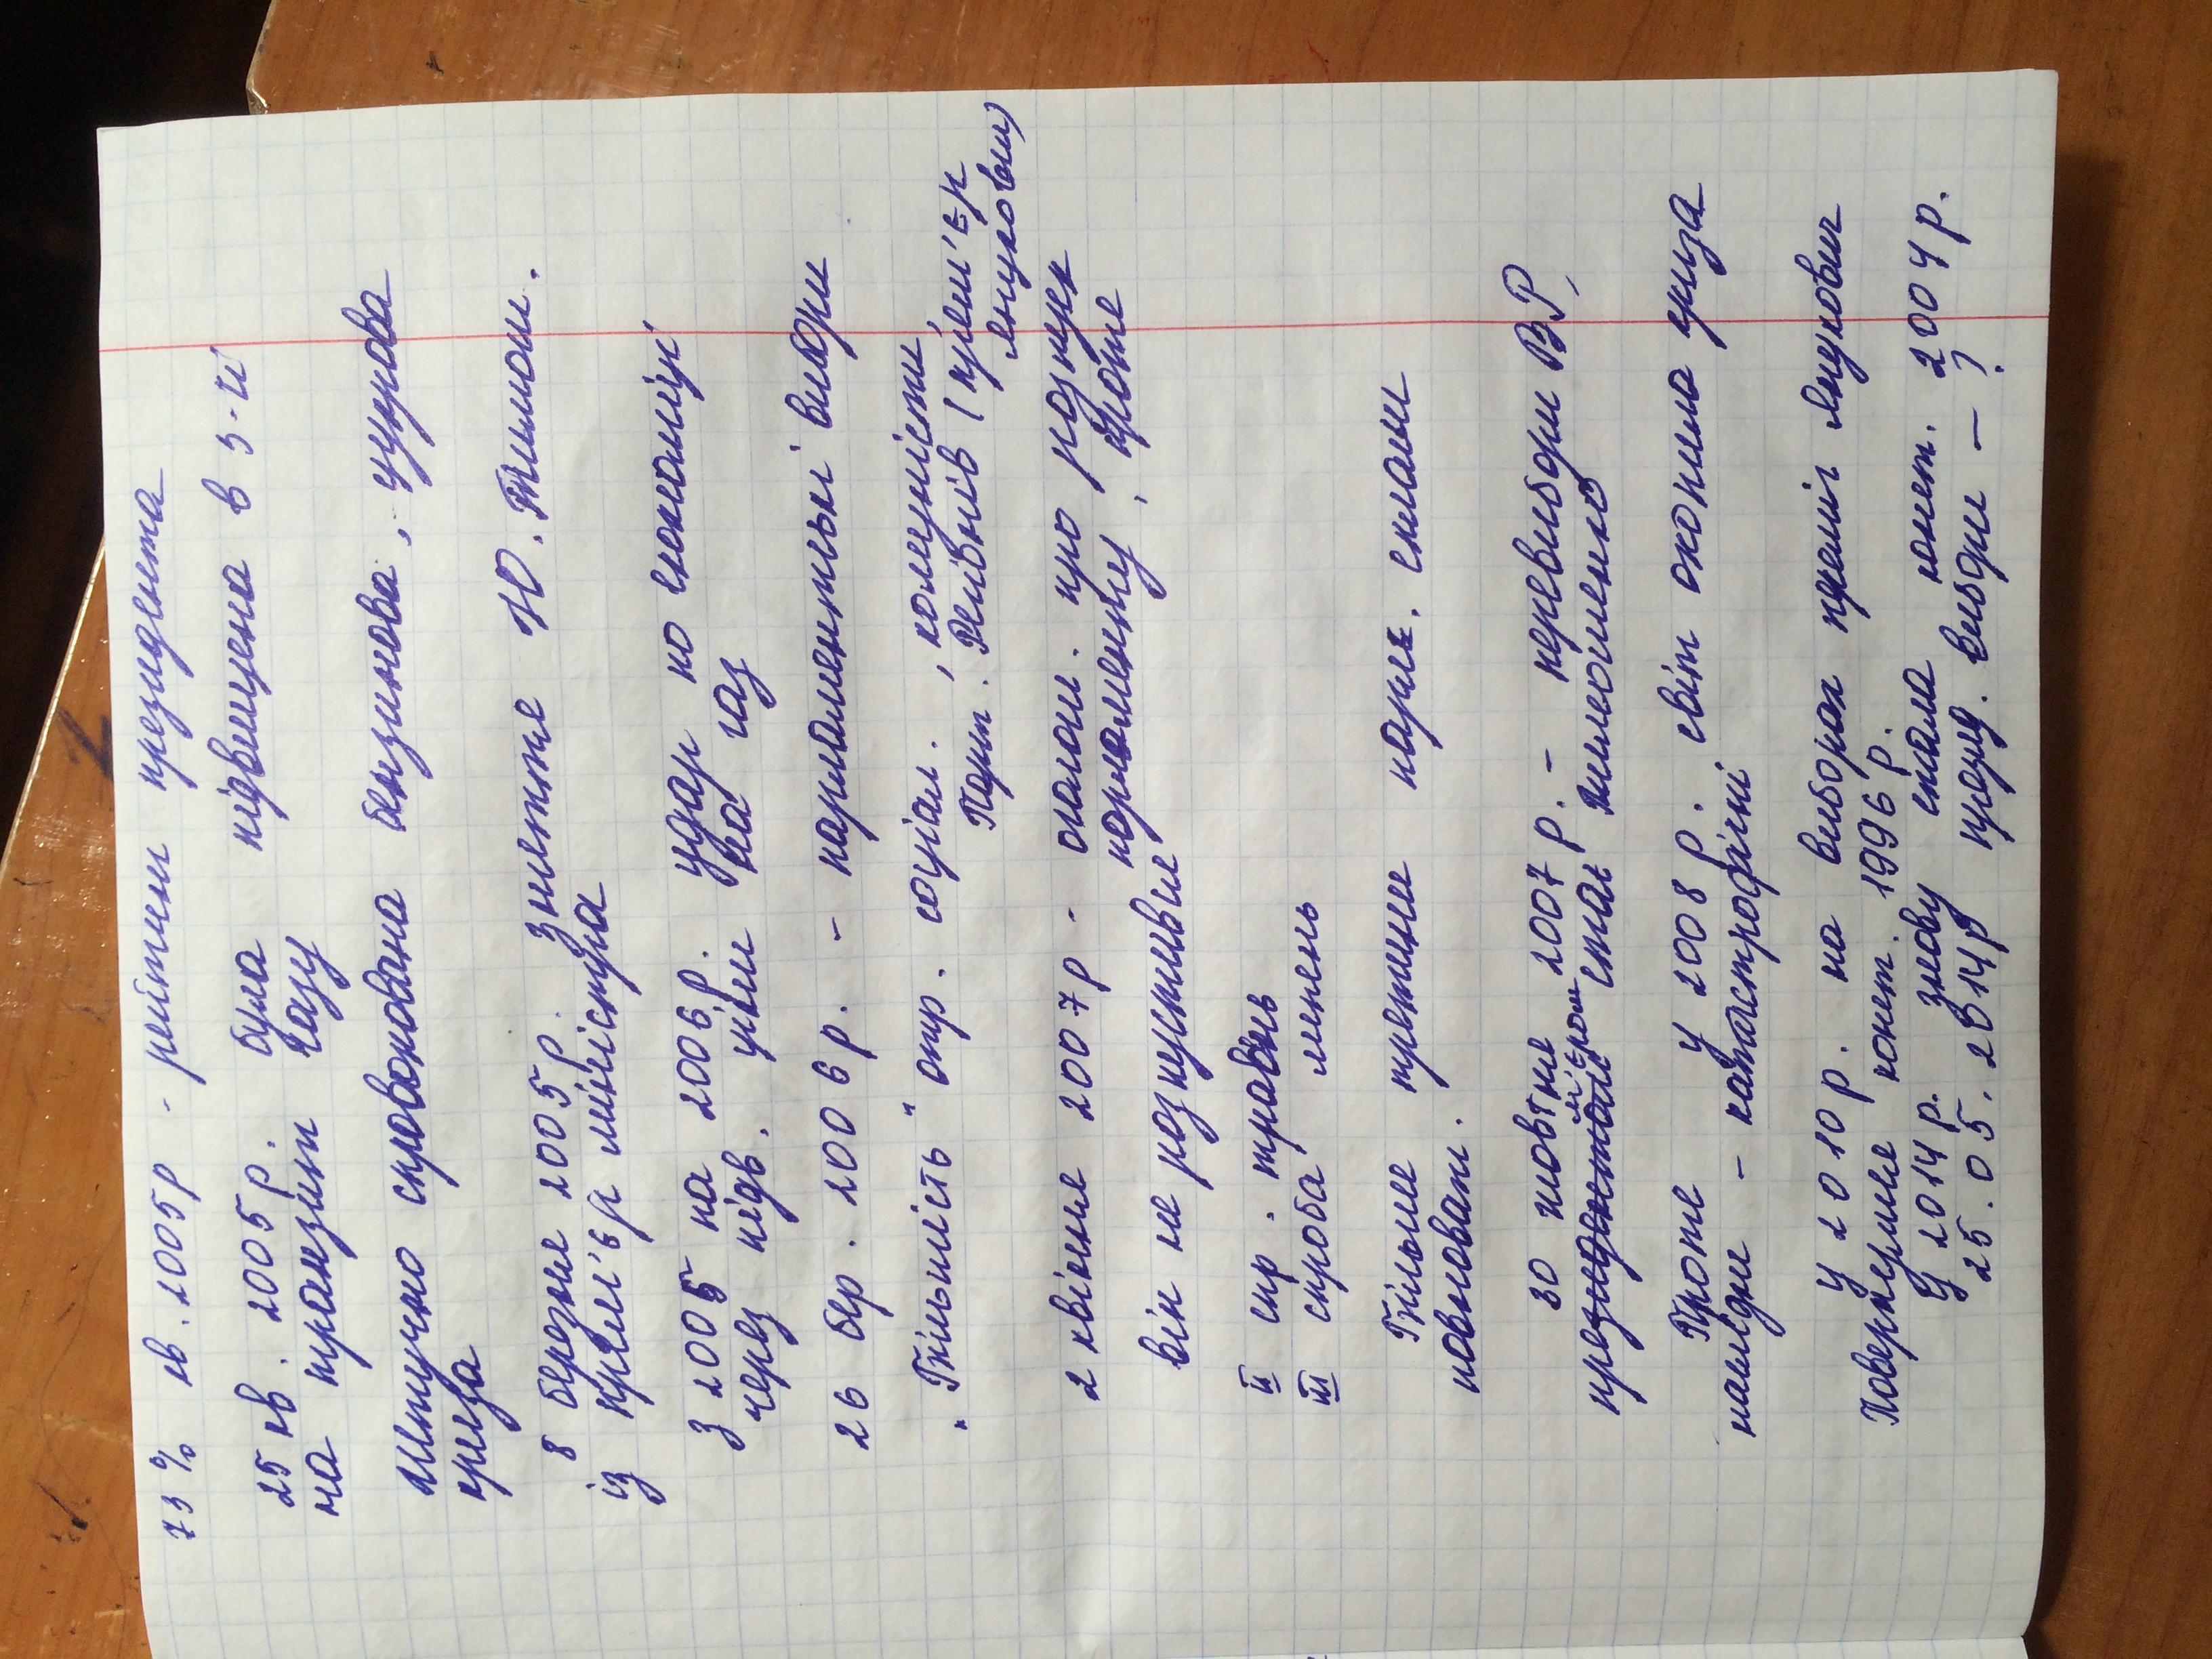 73% кв. 2005р - рейтинг президента
25 кв. 2005р. була підвищена в 3-чі
на транзит газу
Штучно спровокована бензинова, цукрова
криза
8 березня 2005р. зняття Ю. Тимош.
із прем'єр міністра
з 2005 на 2006 р. удар по економіці
через підв. ціни на газ
26 бер. 2006р. - парламентські вибори
"Більшість" отр. соціал., комуністи,
Парт. Регіонів (прем'єр
Янукович)
2 квітня 2007р - оголош. про розпуск
парламенту, проте
він не розпустився
II спр. травень
III спроба липень
Більше третини парл. склали
повноваж.
30 жовтня 2007 р. - перевибори ВР,
прем'єром стає Тимошенко
Проте у 2008 р. світ охопила криза
наслідки - катастрофічні
У 2010р. на виборах переміг Янукович
Повернулися конст. 1996 р.
У 2014 р. знову стала конст. 2004 р.
25.05.2014р презид. вибори - ?